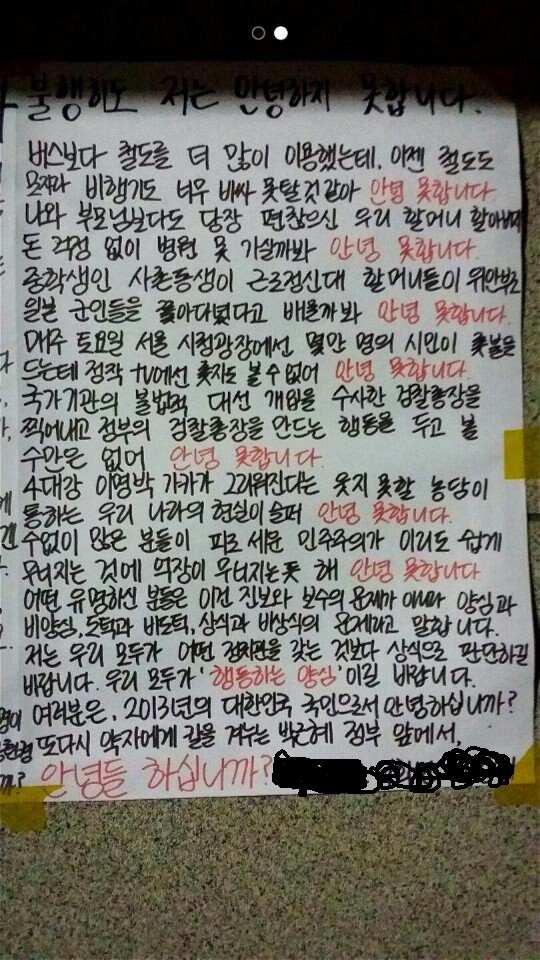 불행히도 저는 안녕하지 못합니다.
버스보다 철도를 더 많이 이용했는데, 이젠 철도도
모자라 비행기도 너무 비싸 못탈것 같아 안녕 못합니다.
나와 부모님보다도 당장 편찮으신 우리 할머니 할아버지
돈 걱정 없이 병원 못 가실까봐 안녕 못합니다.
중학생인 사촌동생이 근로정신대 할머니들이 위안부로
일본 군인들을 쫓아다녔다고 배울까봐 안녕 못합니다.
매주 토요일 서울 시청광장에선 몇만 명의 시민이 촛불을
드는데 정작 tv에선 촛지도 볼 수 없어 안녕 못합니다.
국가기관의 불법적 대선 개입을 수사한 검찰총장을
찍어내고 정부의 검찰총장을 만드는 행동을 두고 볼
수만은 없어 안녕 못합니다.
4대강 이명박 가카가 그리워진다는 웃지 못할 농담이
통하는 우리 나라의 현실이 슬퍼 안녕 못합니다.
수없이 많은 분들이 피로 세운 민주주의가 이리도 쉽게
무너지는 것에 억장이 무너지는 듯 해 안녕 못합니다
어떤 유명하신 분들은 이건 진보와 보수의 문제가 아니라 양심과
비양심, 도덕과 비도덕, 상식과 비상식의 문제라고 말합니다.
저는 우리 모두가 어떤 정치관을 갖는 것보다 상식으로 판단하길
바랍니다. 우리 모두가 '행동하는 양심'이길 바랍니다.
여러분은, 2013년의 대한민국 국민으로서 안녕하십니까?
또다시 약자에게 칼을 겨누는 박근혜 정부 앞에서,
안녕들 하십니까?